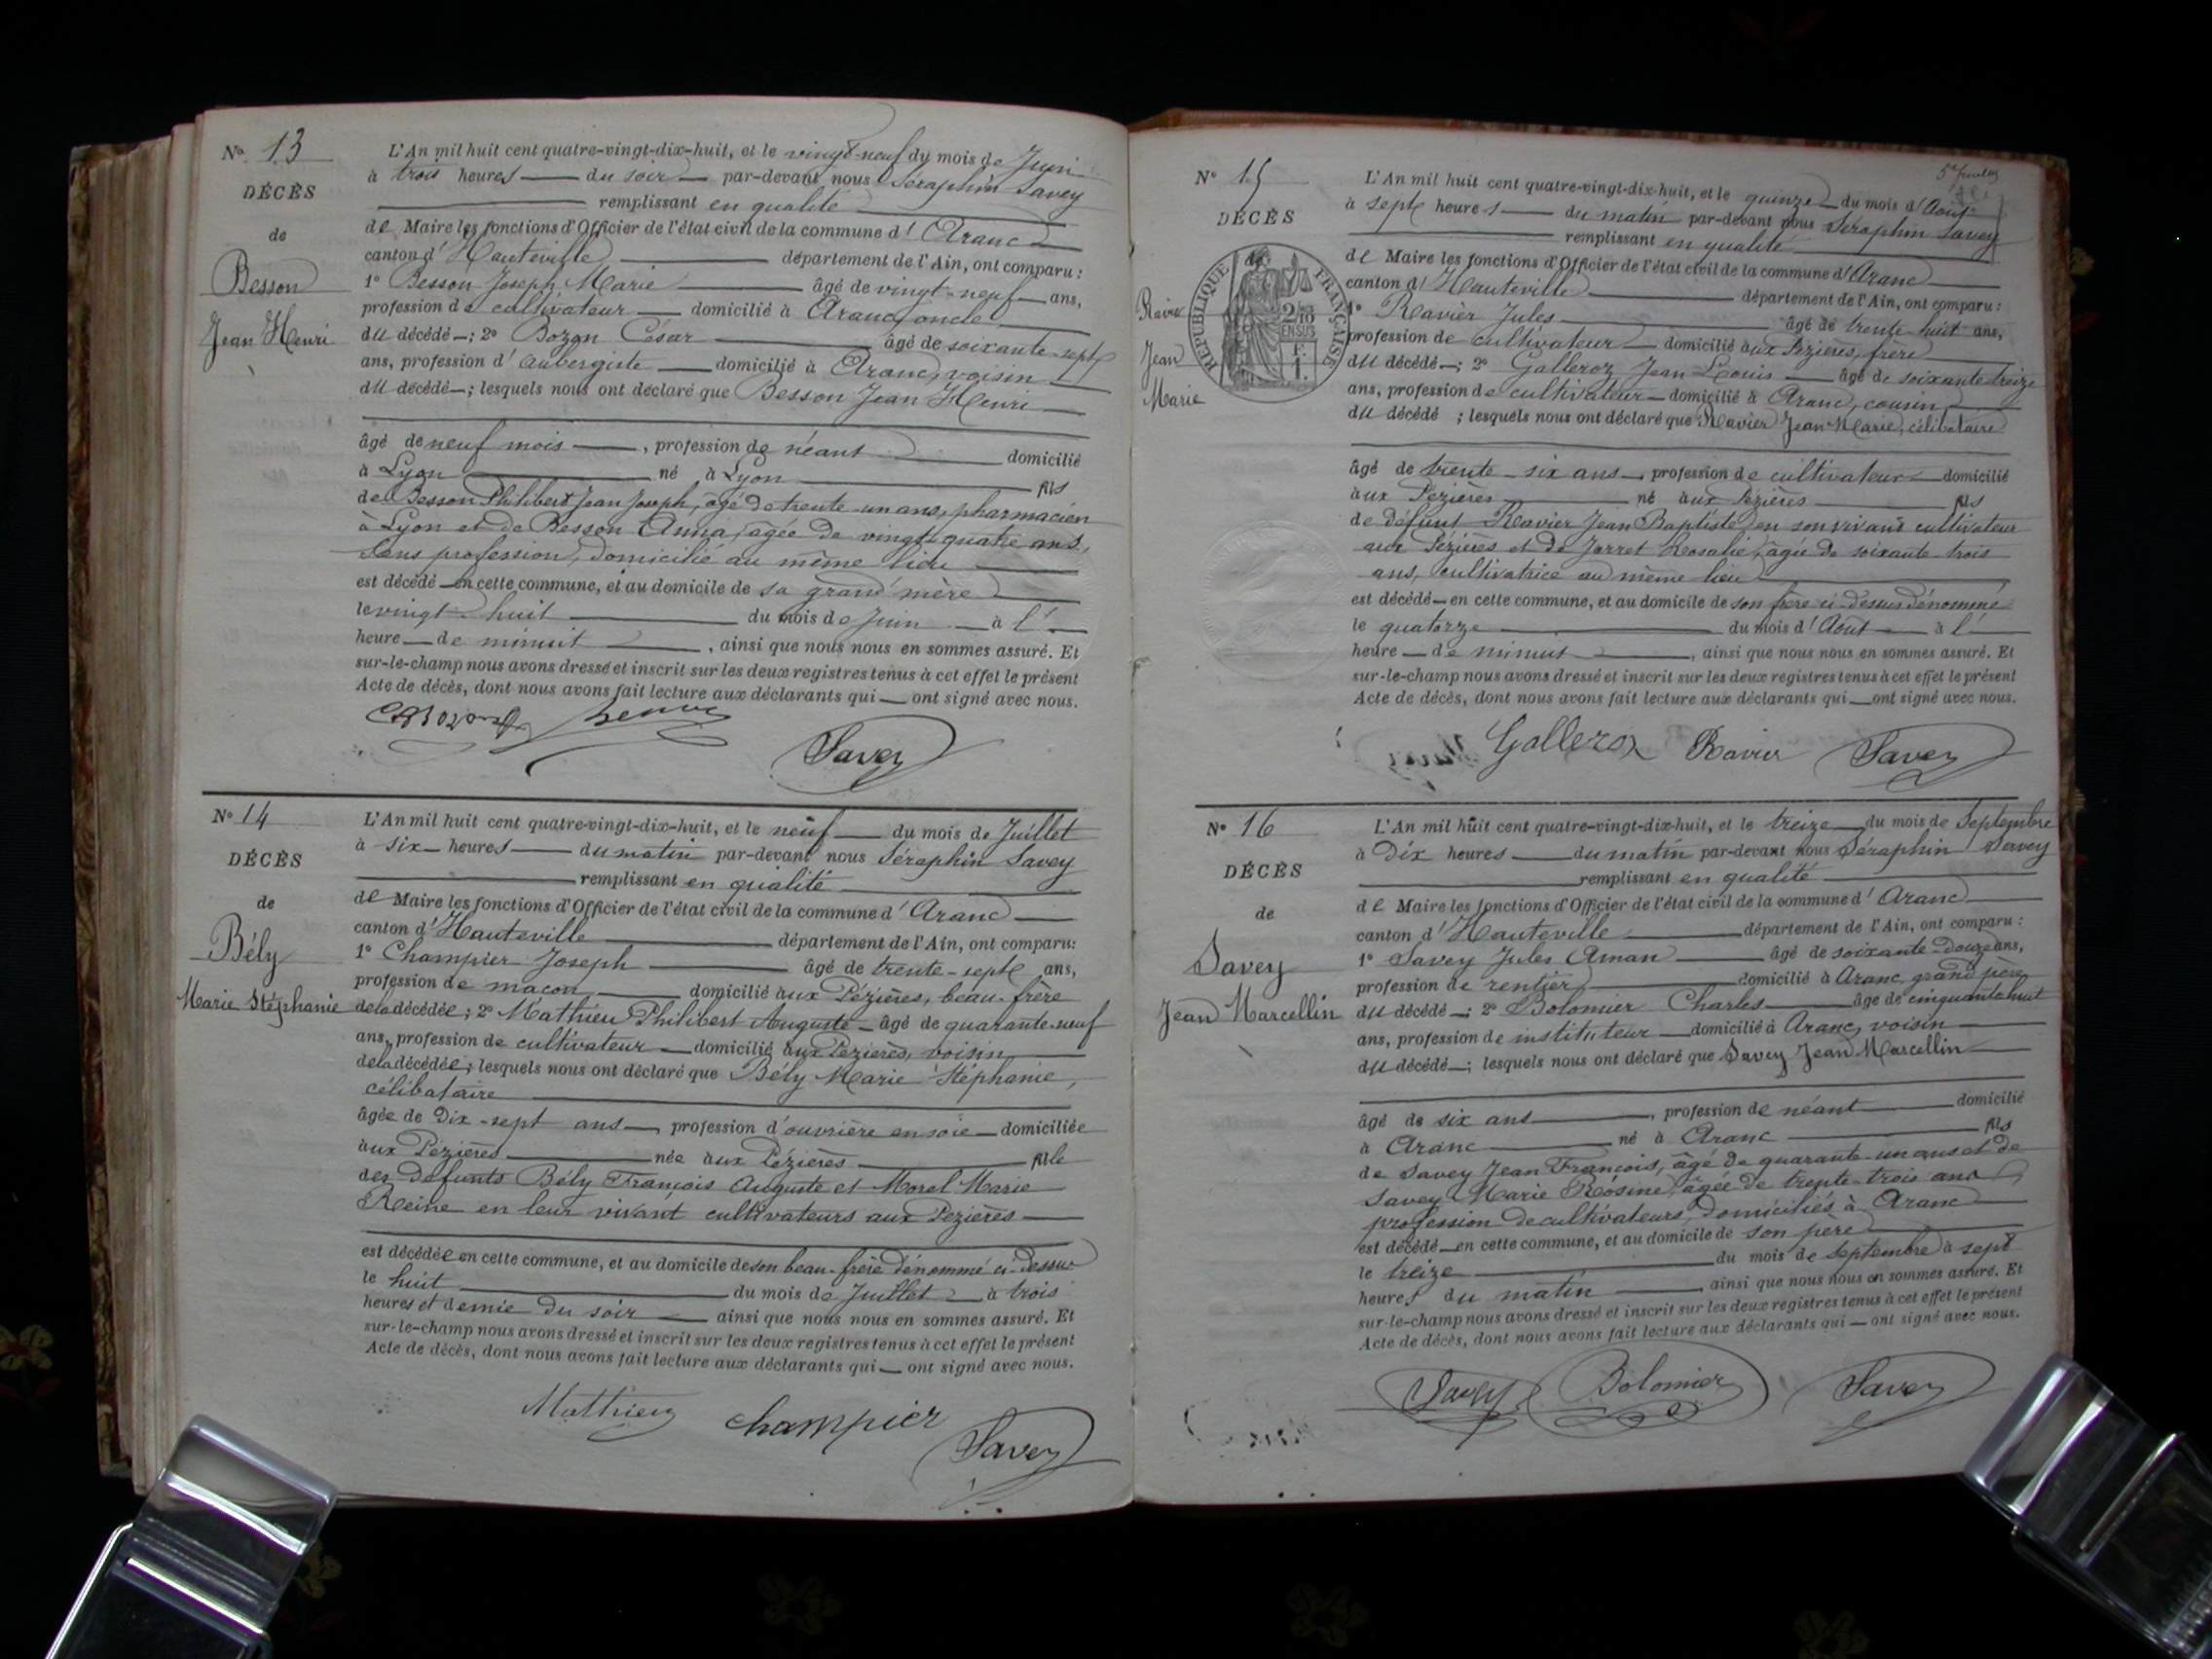 Nº 13
DÉCÈS
de
Besson
Jean Henri
L'An mil huit cent quatre-vingt-dix-huit, et le vingt-neuf du mois de Juin
à trois heures du soir par-devant nous Séraphin Savey
remplissant en qualité
de Maire les fonctions d'Officier de l'état civil de la commune d'Aranc
canton d'Hauteville département de l'Ain, ont comparu :
1º Besson Joseph Marie âgé de vingt-neuf ans,
profession de cultivateur domicilié à Aranc, oncle
du décédé ; 2º Bozon César âgé de soixante-sept
ans, profession d'aubergiste domicilié à Aranc, voisin
du décédé ; lesquels nous ont déclaré que Besson Jean Henri
âgé de neuf mois, profession de néant domicilié
à Lyon né à Lyon fils
de Besson Philibert Jean Joseph, âgé de trente-un ans, pharmacien
à Lyon et de Besson Anna, agée de vingt-quatre ans,
sans profession, domicilié au même lieu
est décédé en cette commune, et au domicile de sa grand'mère
le vingt-huit du mois de Juin à l'
heure de minuit, ainsi que nous nous en sommes assuré. Et
sur-le-champ nous avons dressé et inscrit sur les deux registres tenus à cet effet le présent
Acte de décès, dont nous avons fait lecture aux déclarants qui ont signé avec nous.
Savey
Nº 14
DÉCÈS
de
Bély
Marie Stéphanie
L'An mil huit cent quatre-vingt-dix-huit, et le neuf du mois de Juillet
à six heures du matin par-devant nous Séraphin Savey
remplissant en qualité
de Maire les fonctions d'Officier de l'état civil de la commune d'Aranc
canton d'Hauteville département de l'Ain, ont comparu :
1º Champier Joseph âgé de trente-sept ans,
profession de maçon domicilié aux Pézières, beau-frère
de la décédée ; 2º Mathieu Philibert Auguste âgé de quarante-neuf
ans, profession de cultivateur domicilié aux Pezières, voisin
de la décédée ; lesquels nous ont déclaré que Bély Marie Stéphanie,
célibataire
âgée de Dix-sept ans, profession d'ouvrière en soie domiciliée
aux Pézières née aux Pézières fille
des défunts Bély François Auguste et Morel Marie
Reine en leur vivant cultivateurs aux Pezières
est décédée en cette commune, et au domicile de son beau-frère dénommé ci-dessus
le huit du mois de Juillet à trois
heures et demie du soir ainsi que nous nous en sommes assuré. Et
sur-le-champ nous avons dressé et inscrit sur les deux registres tenus à cet effet le présent
Acte de décès, dont nous avons fait lecture aux déclarants qui ont signé avec nous.
Mathieu Champier Savey
Nº 15
DÉCÈS
de
Ravier
Jean
Marie
RÉPUBLIQUE FRANÇAISE
2/10
EN SUS
L'An mil huit cent quatre-vingt-dix-huit, et le quinze du mois d'Aout
à sept heures du matin par-devant nous Séraphin Savey
remplissant en qualité
de Maire les fonctions d'Officier de l'état civil de la commune d'Aranc
canton d'Hauteville département de l'Ain, ont comparu :
1º Ravier Jules âgé de trente-huit ans,
profession de cultivateur domicilié aux Pezières, frère
du décédé ; 2º Galleroz Jean Louis âgé de soixante-treize
ans, profession de cultivateur domicilié à Aranc, cousin
du décédé ; lesquels nous ont déclaré que Ravier Jean Marie, célibataire
âgé de trente-six ans, profession de cultivateur domicilié
aux Pézières né aux Pézières fils
de défunt Ravier Jean Baptiste en son vivant cultivateur
aux Pézières et de Jarret Rosalie, âgée de soixante-trois
ans, cultivatrice au même lieu
est décédé en cette commune, et au domicile de son frère ci-dessus dénommé
le quatorze du mois d'Aout à l'
heure de minuit, ainsi que nous nous en sommes assuré. Et
sur-le-champ nous avons dressé et inscrit sur les deux registres tenus à cet effet le présent
Acte de décès, dont nous avons fait lecture aux déclarants qui ont signé avec nous.
Galleroz Ravier Savey
Nº 16
DÉCÈS
de
Savey
Jean Marcellin
L'An mil huit cent quatre-vingt-dix-huit, et le treize du mois de Septembre
à Dix heures du matin par-devant nous Séraphin Savey
remplissant en qualité
de Maire les fonctions d'Officier de l'état civil de la commune d'Aranc
canton d'Hauteville département de l'Ain, ont comparu :
1º Savey Jules Aman âgé de soixante-douze ans,
profession de rentier domicilié à Aranc, grand père
du décédé ; 2º Bolomier Charles âgé de cinquante huit
ans, profession de instituteur domicilié à Aranc, voisin
du décédé ; lesquels nous ont déclaré que Savey Jean Marcellin
âgé de six ans, profession de néant domicilié
à Aranc né à Aranc fils
de Savey Jean François, âgé de quarante-un ans et de
Savey Marie Rosine, agée de trente-trois ans
profession de cultivateurs, domiciliés à Aranc
est décédé en cette commune, et au domicile de son père
le treize du mois de septembre à sept
heures du matin, ainsi que nous nous en sommes assuré. Et
sur-le-champ nous avons dressé et inscrit sur les deux registres tenus à cet effet le présent
Acte de décès, dont nous avons fait lecture aux déclarants qui ont signé avec nous.
Savey Bolomier Savey